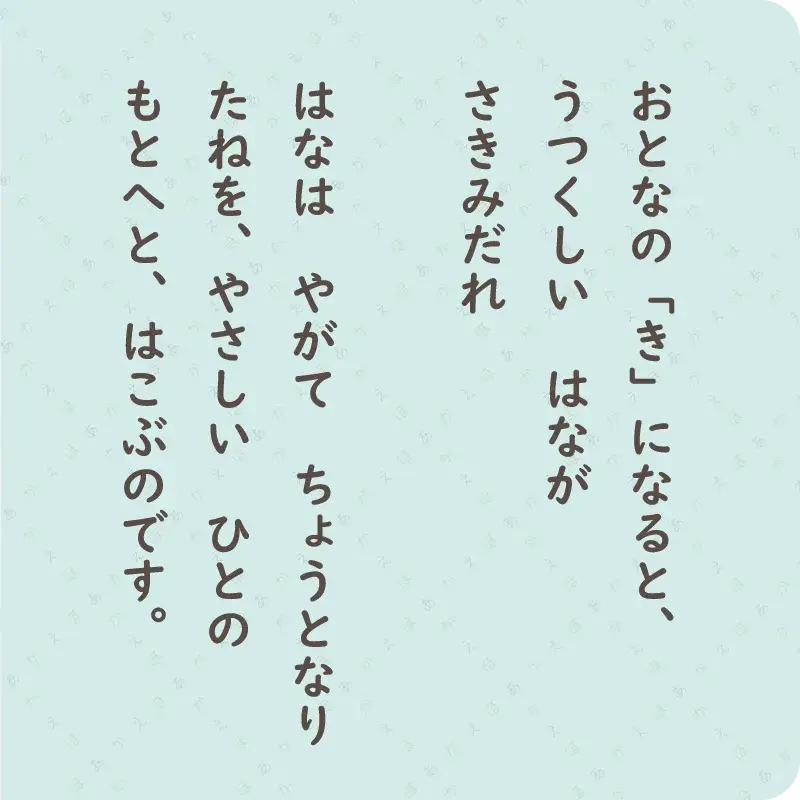 おとなの「き」になると、
うつくしい　はなが
さきみだれ
はなは　やがて　ちょうとなり
たねを、やさしい　ひとの
もとへと、はこぶのです。